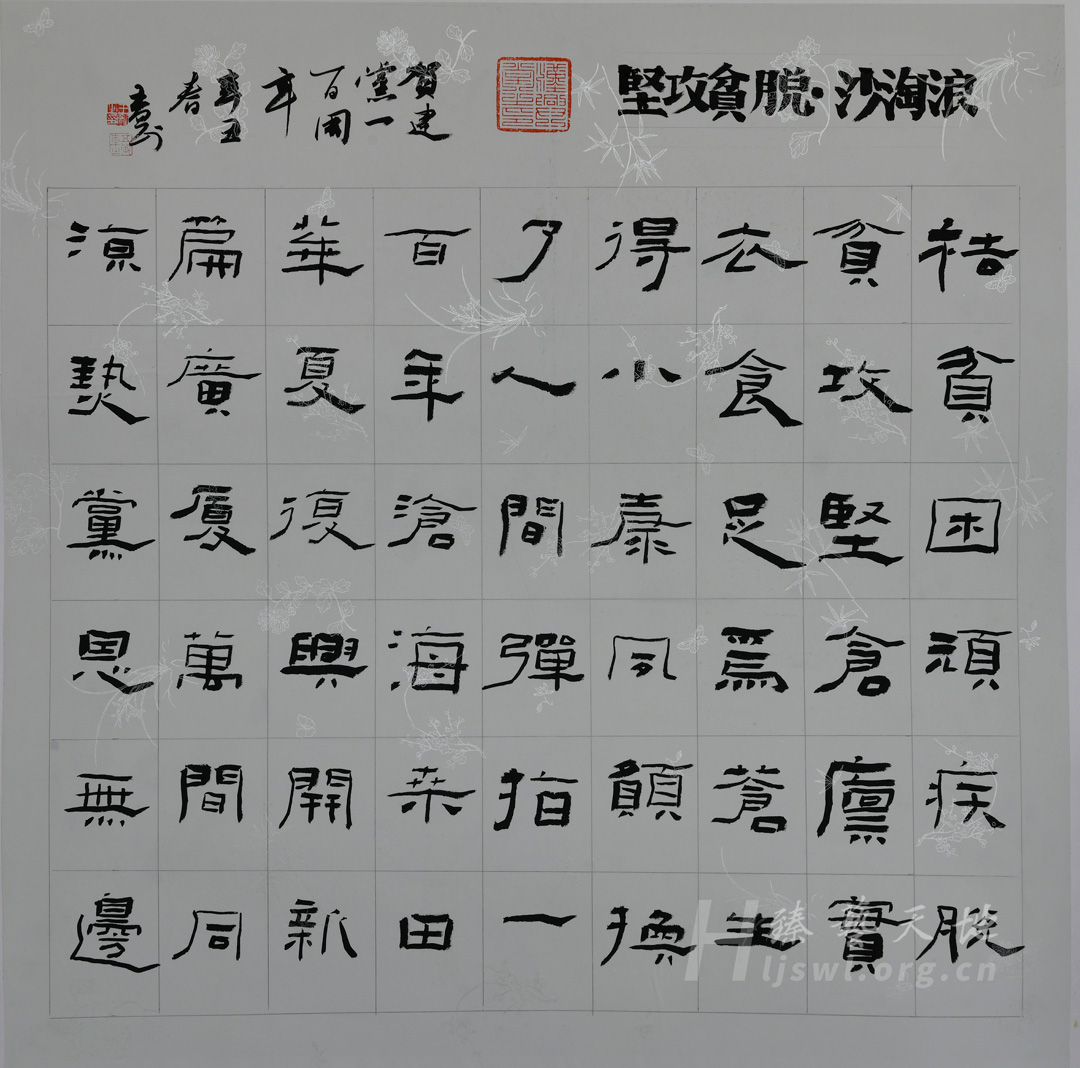 浪淘沙·脱貧攻堅
賀建
黨一
百周
年
辛丑
春
祛貧困頑疾脱
貧攻堅倉廩實
衣食足爲蒼生
得小康夙願換
了人間彈指一
百年滄海桑田
華夏復興開新
篇廣厦萬間同
涼熱黨恩無邊
Hljswl.org.cn